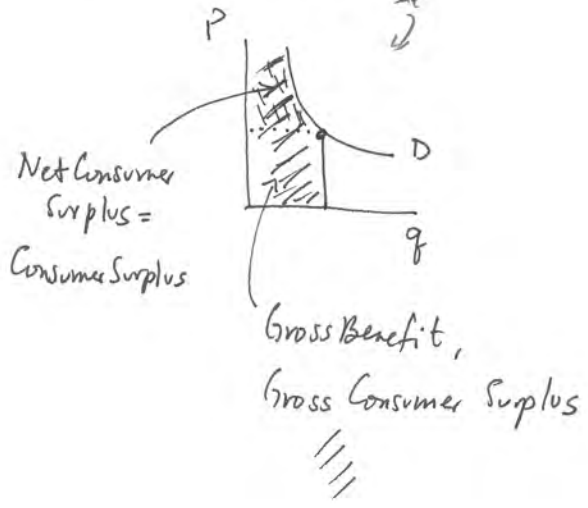 P
D
Net Consumer
Surplus =
Consumer Surplus
q
Gross Benefit,
Gross Consumer Surplus